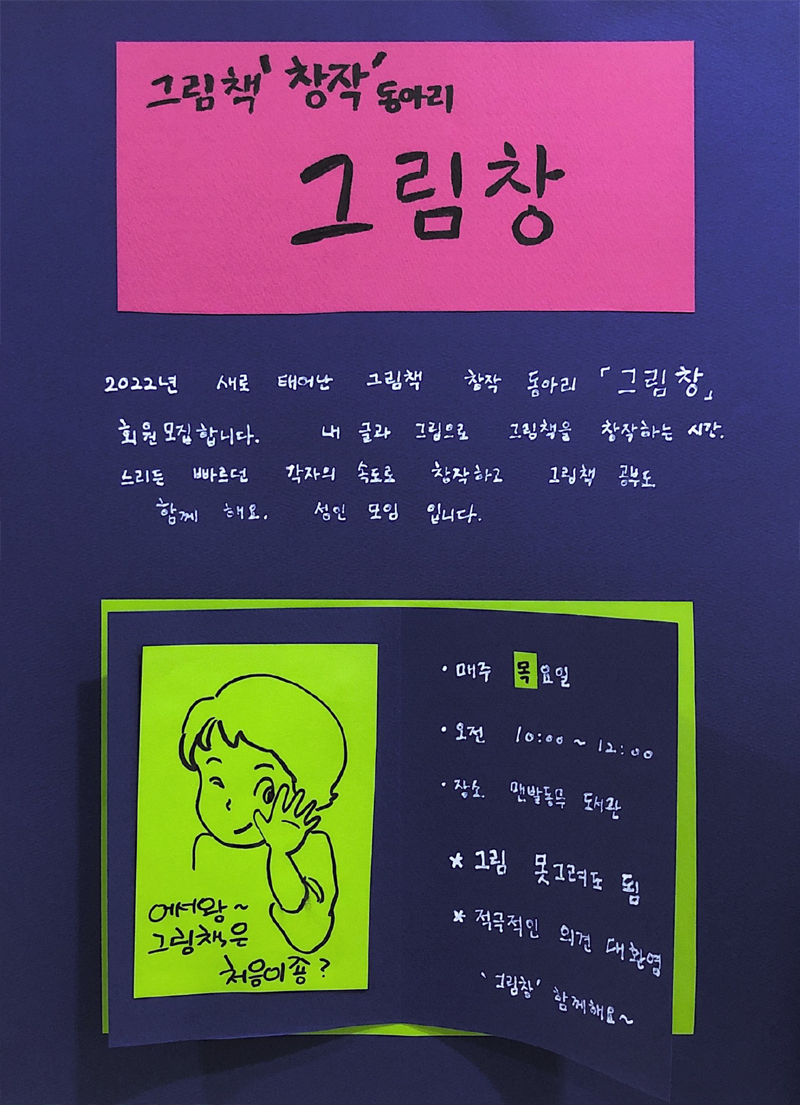 그림책 '창작' 동아리
그림창
2022년 새로 태어난 그림책 창작 동아리 「그림창」
회원모집합니다. 내 글과 그림으로 그림책을 창작하는 시간.
느리든 빠르던 각자의 속도로 창작하고 그림책 공부도
함께 해요. 성인 모임 입니다.
어서왕~
그림책은
처음이죵?
· 매주 목요일
· 오전 10:00 ~ 12:00
· 장소. 맨발동무 도서관
* 그림 못그려도 됨
* 적극적인 의견 대환영
'그림창' 함께해요~